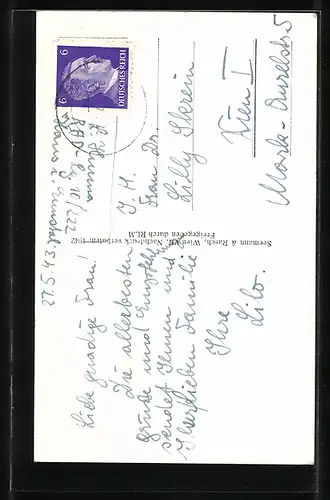 27.5.43.
Liebe gnädige Frau!
Die allerbesten
Grüße und
sendet Ihnen und
Ihrer lieben Familie
Ihre
Lilo.
Seemann & Rasch, Wien VII. Nachdruck verboten. 1942
Freigegeben durch RLM
6 6
DEUTSCHES REICH
RAD - Lg. 10/222
Frau Dr.
Lilly
Wien I
Mark-Aurelstr. 5